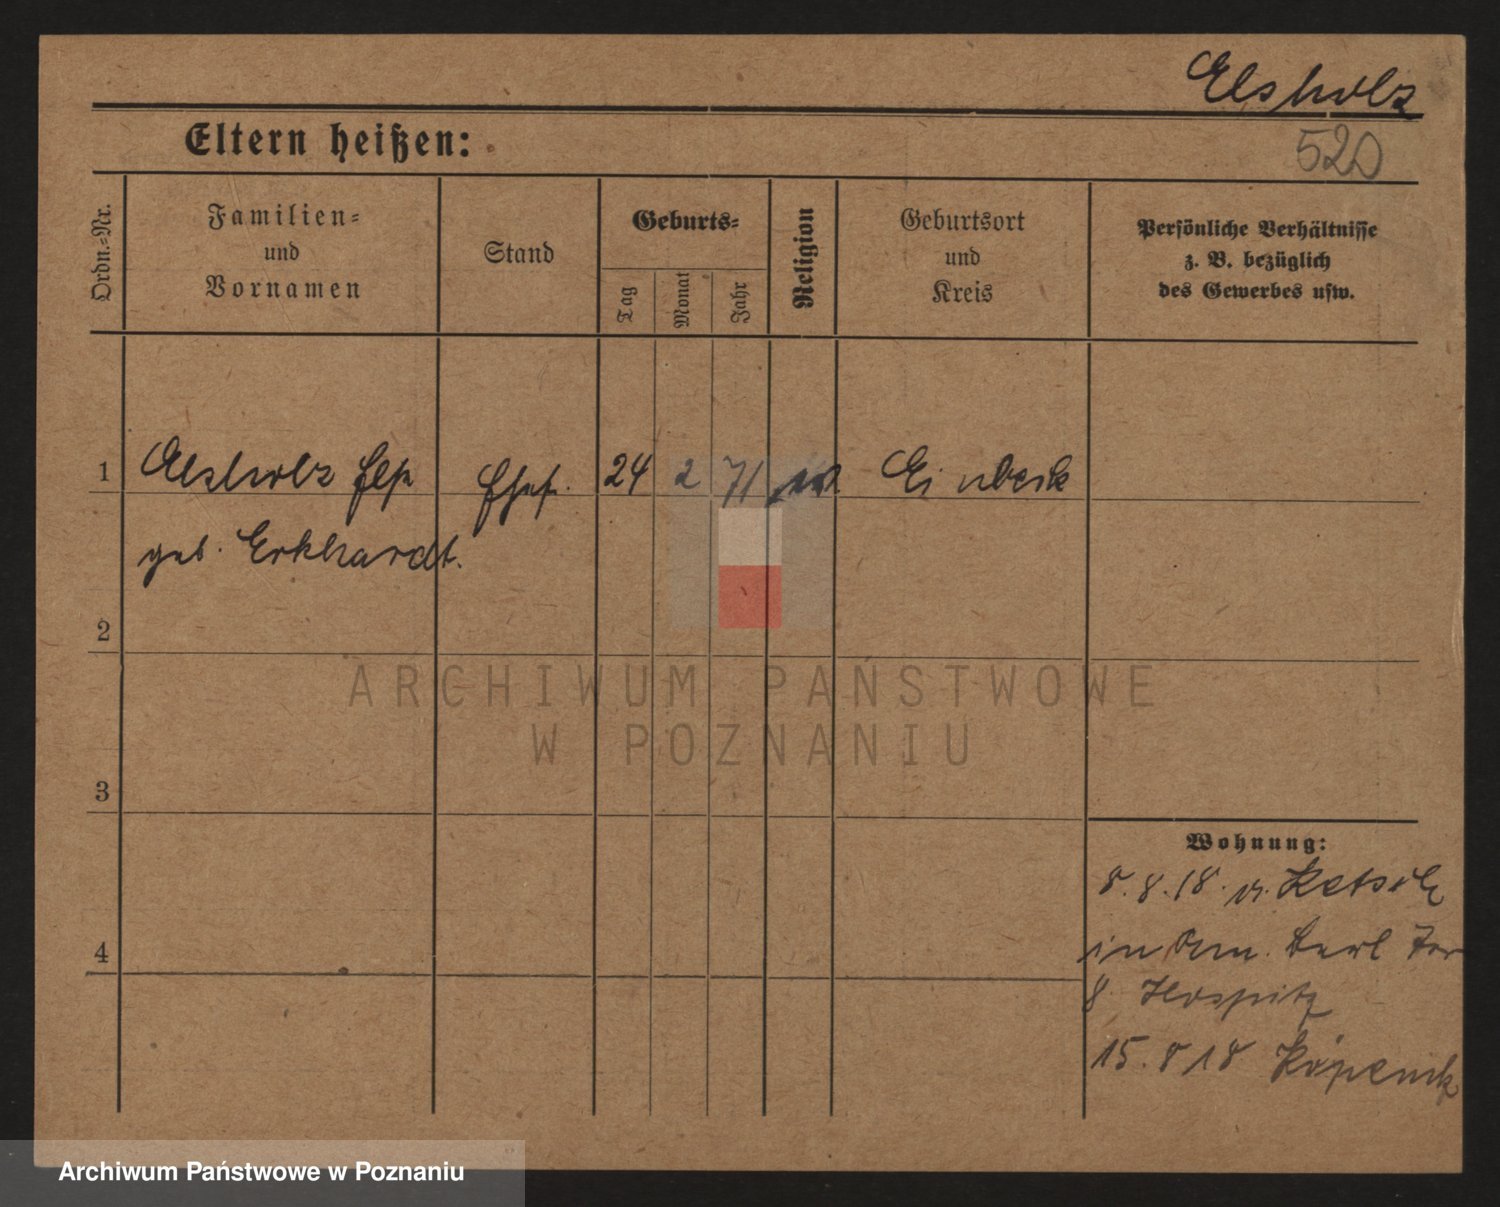 Elsholz
Eltern heißen:
520
Ordn.-Nr.
Familien-
und
Vornamen
Stand
Geburts-
Tag
Monat
Jahr
Religion
Geburtsort
und
Kreis
Persönliche Verhältnisse
z. B. bezüglich
des Gewerbes usw.
1 Elsholz 24 2 71 Einbeck
geb. Erkhardt.
2
ARCHIWUM PAŃSTWOWE
W POZNANIU
3
Wohnung:
8.8.18. v.
4 in
8 Hospitz
15.8 18 Köpenik
Archiwum Państwowe w Poznaniu